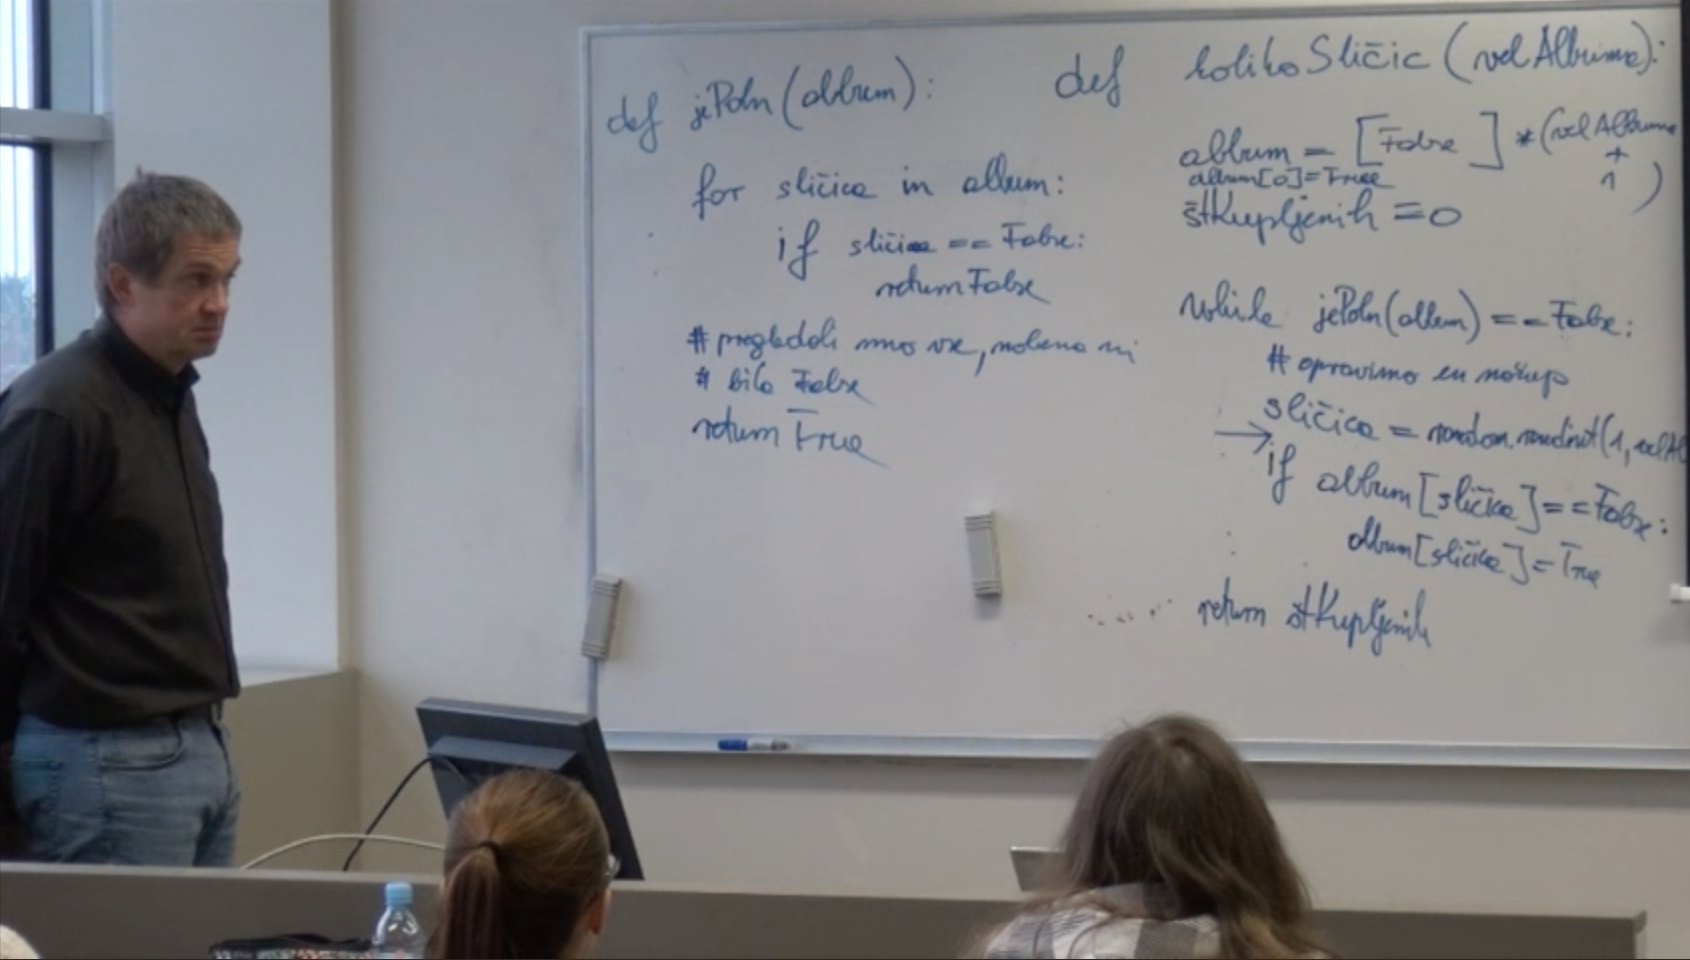 def jePoln(album):
for sličica in album:
if sličica == False:
return False
# pregledali smo vse, nobena ni
# bila False
return True
def kolikoSličic(velAlbuma):
album = [False] * (velAlbuma + 1)
album[0]=True
štKupljenih = 0
while jePoln(album) == False:
# opravimo en nakup
sličica = random.randint(1, velAl
→ if album[sličica] == False:
album[sličica] = True
return štKupljenih